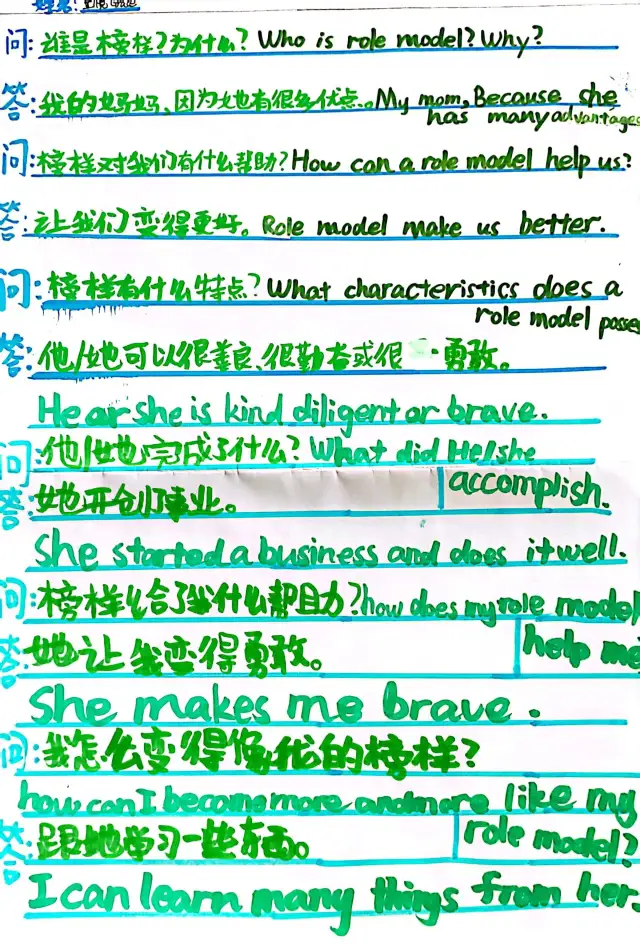 姓名:
问: 谁是榜样?为什么? Who is role model? Why?
答: 我的妈妈、因为她有很多优点。My mom, Because she
has many advantages
问: 榜样对我们有什么帮助? How can a role model help us?
答: 让我们变得更好。Role model make us better.
问: 榜样有什么特点? What characteristics does a
role model posses
答: 他/她可以很善良、很勤奋或很勇敢。
He or she is kind diligent or brave.
问: 他/她完成了什么? What did He/she
accomplish.
答: 她开创了事业。
She started a business and does it well.
问: 榜样给了我什么帮助? how does my role model
help me
答: 她让我变得勇敢。
She makes me brave.
问: 我怎么变得像我的榜样?
how can I become more and more like my
role model?
答: 跟她学习一些东西。
I can learn many things from her.